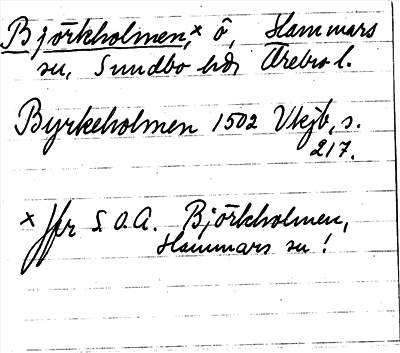 Björkholmen,× ö, Hammars
sn, Sundbo hd, Örebro l.
Byrkeholmen 1502 Vkjb, s.
217.
× Jfr S.O.A. Björkholmen,
Hammars sn!